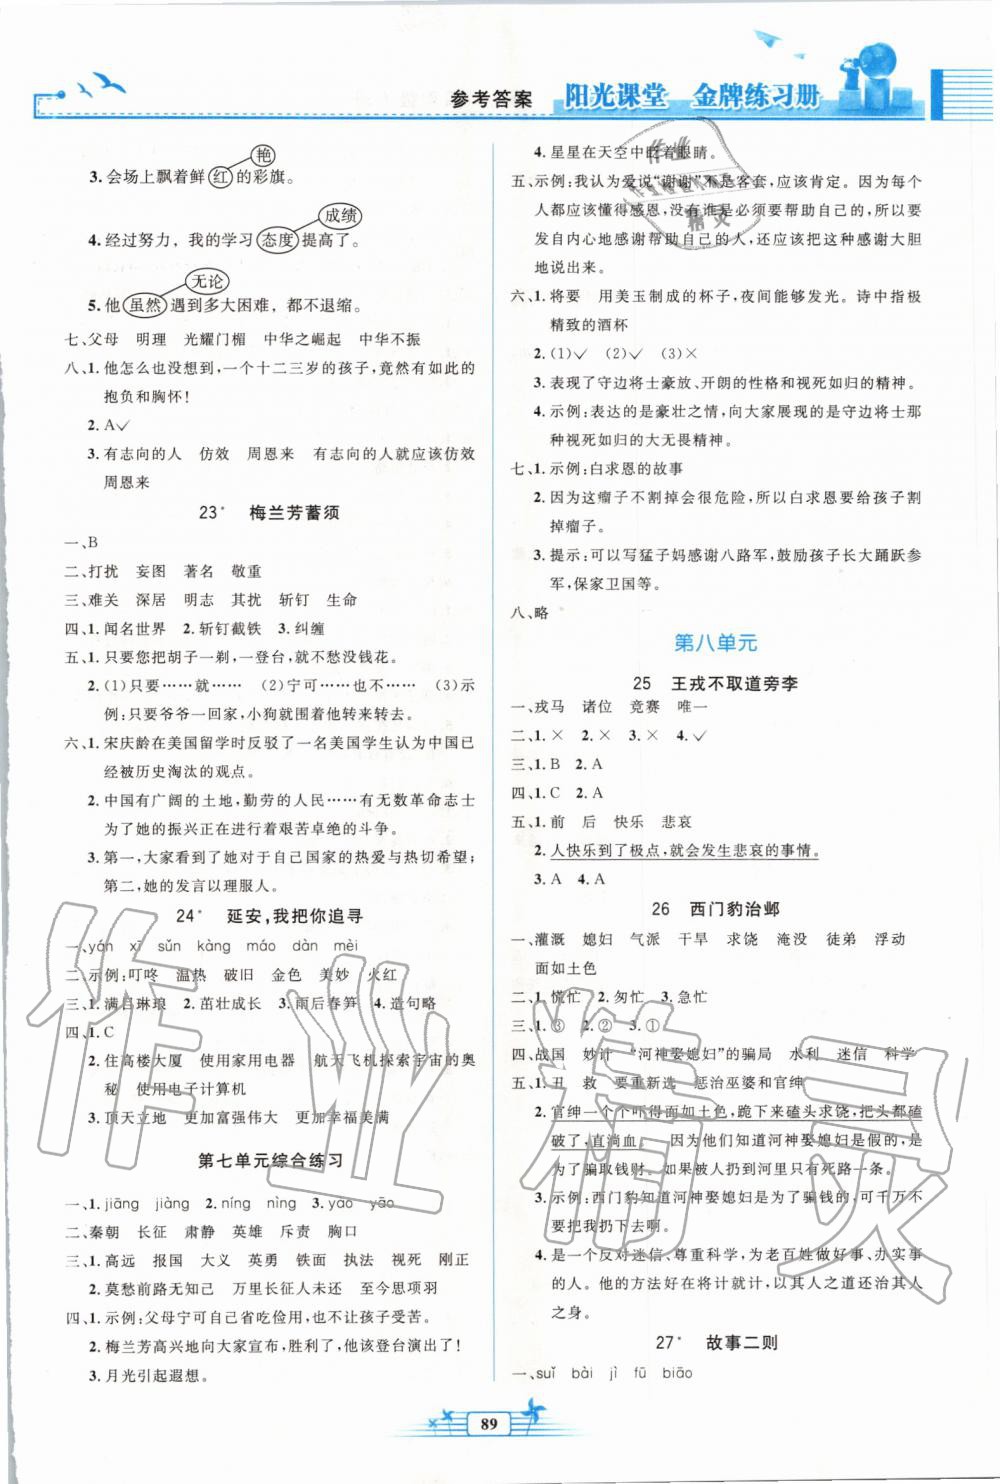 参考答案
阳光课堂 金牌练习册
艳
3.会场上飘着鲜红的彩旗。
成绩
4.经过努力，我的学习态度提高了。
无论
5.他虽然遇到多大困难，都不退缩。
七、父母 明理 光耀门楣 中华之崛起 中华不振
八、1.他怎么也没想到,一个十二三岁的孩子,竟然有如此的
抱负和胸怀!
2.A✓
3.有志向的人 仿效 周恩来 有志向的人就应该仿效
周恩来
23* 梅兰芳蓄须
一、B
二、打扰 妄图 著名 敬重
三、难关 深居 明志 其扰 斩钉 生命
四、1.闻名世界 2.斩钉截铁 3.纠缠
五、1.只要您把胡子一剃,一登台,就不愁没钱花。
2.(1)只要……就…… (2)宁可……也不…… (3)示
例:只要爷爷一回家,小狗就围着他转来转去。
六、1.宋庆龄在美国留学时反驳了一名美国学生认为中国已
经被历史淘汰的观点。
2.中国有广阔的土地,勤劳的人民……有无数革命志士
为了她的振兴正在进行着艰苦卓绝的斗争。
3.第一,大家看到了她对于自己国家的热爱与热切希望;
第二,她的发言以理服人。
24* 延安,我把你追寻
一、yán xī sǔn kàng máo dàn mèi
二、示例:叮咚 温热 破旧 金色 美妙 火红
三、1.满目琳琅 2.茁壮成长 3.雨后春笋 4.造句略
四、1.C
2.住高楼大厦 使用家用电器 航天飞机探索宇宙的奥
秘 使用电子计算机
3.顶天立地 更加富强伟大 更加幸福美满
第七单元综合练习
一、1.jiāng jiàng 2.níng nìng 3.yào yāo
二、秦朝 长征 肃静 英雄 斥责 胸口
三、1.高远 报国 大义 英勇 铁面 执法 视死 刚正
2.莫愁前路无知己 万里长征人未还 至今思项羽
四、1.示例:父母宁可自己省吃俭用,也不让孩子受苦。
2.梅兰芳高兴地向大家宣布,胜利了,他该登台演出了!
3.月光引起遐想。
4.星星在天空中眨着眼睛。
五、示例:我认为爱说“谢谢”不是客套,应该肯定。因为每个
人都应该懂得感恩,没有谁是必须要帮助自己的,所以要
发自内心地感谢帮助自己的人,还应该把这种感谢大胆
地说出来。
六、1.将要 用美玉制成的杯子,夜间能够发光。诗中指极
精致的酒杯
2.(1)✓ (2)✓ (3)×
3.表现了守边将士豪放、开朗的性格和视死如归的精神。
4.示例:表达的是豪壮之情,向大家展现的是守边将士那
种视死如归的大无畏精神。
七、1.示例:白求恩的故事
2.因为这瘤子不割掉会很危险,所以白求恩要给孩子割
掉瘤子。
3.提示:可以写猛子妈感谢八路军,鼓励孩子长大踊跃参
军,保家卫国等。
八、略
第八单元
25 王戎不取道旁李
一、戎马 诸位 竞赛 唯一
二、1.× 2.× 3.× 4.✓
三、1.B 2.A
四、1.C 2.A
五、1.前 后 快乐 悲哀
2.人快乐到了极点,就会发生悲哀的事情。
3.A 4.A
26 西门豹治邺
一、灌溉 媳妇 气派 干旱 求饶 淹没 徒弟 浮动
面如土色
二、1.慌忙 2.匆忙 3.急忙
三、1.③ 2.② 3.①
四、战国 妙计 “河神娶媳妇”的骗局 水利 迷信 科学
五、1.丑 救 要重新选 惩治巫婆和官绅
2.官绅一个个吓得面如土色,跪下来磕头求饶,把头都磕
破了,直淌血。 因为他们知道河神娶媳妇是假的,是
为了骗取钱财。如果被扔到河里只有死路一条。
3.示例:西门豹知道河神娶媳妇是为了骗钱的,可千万不
要把我扔下去啊。
4.是一个反对迷信、尊重科学、为老百姓做好事、办实事
的人。他的方法好在将计就计,以其人之道还治其人
之身。
27* 故事二则
一、suǐ bài jì fū biāo
89
作业精灵